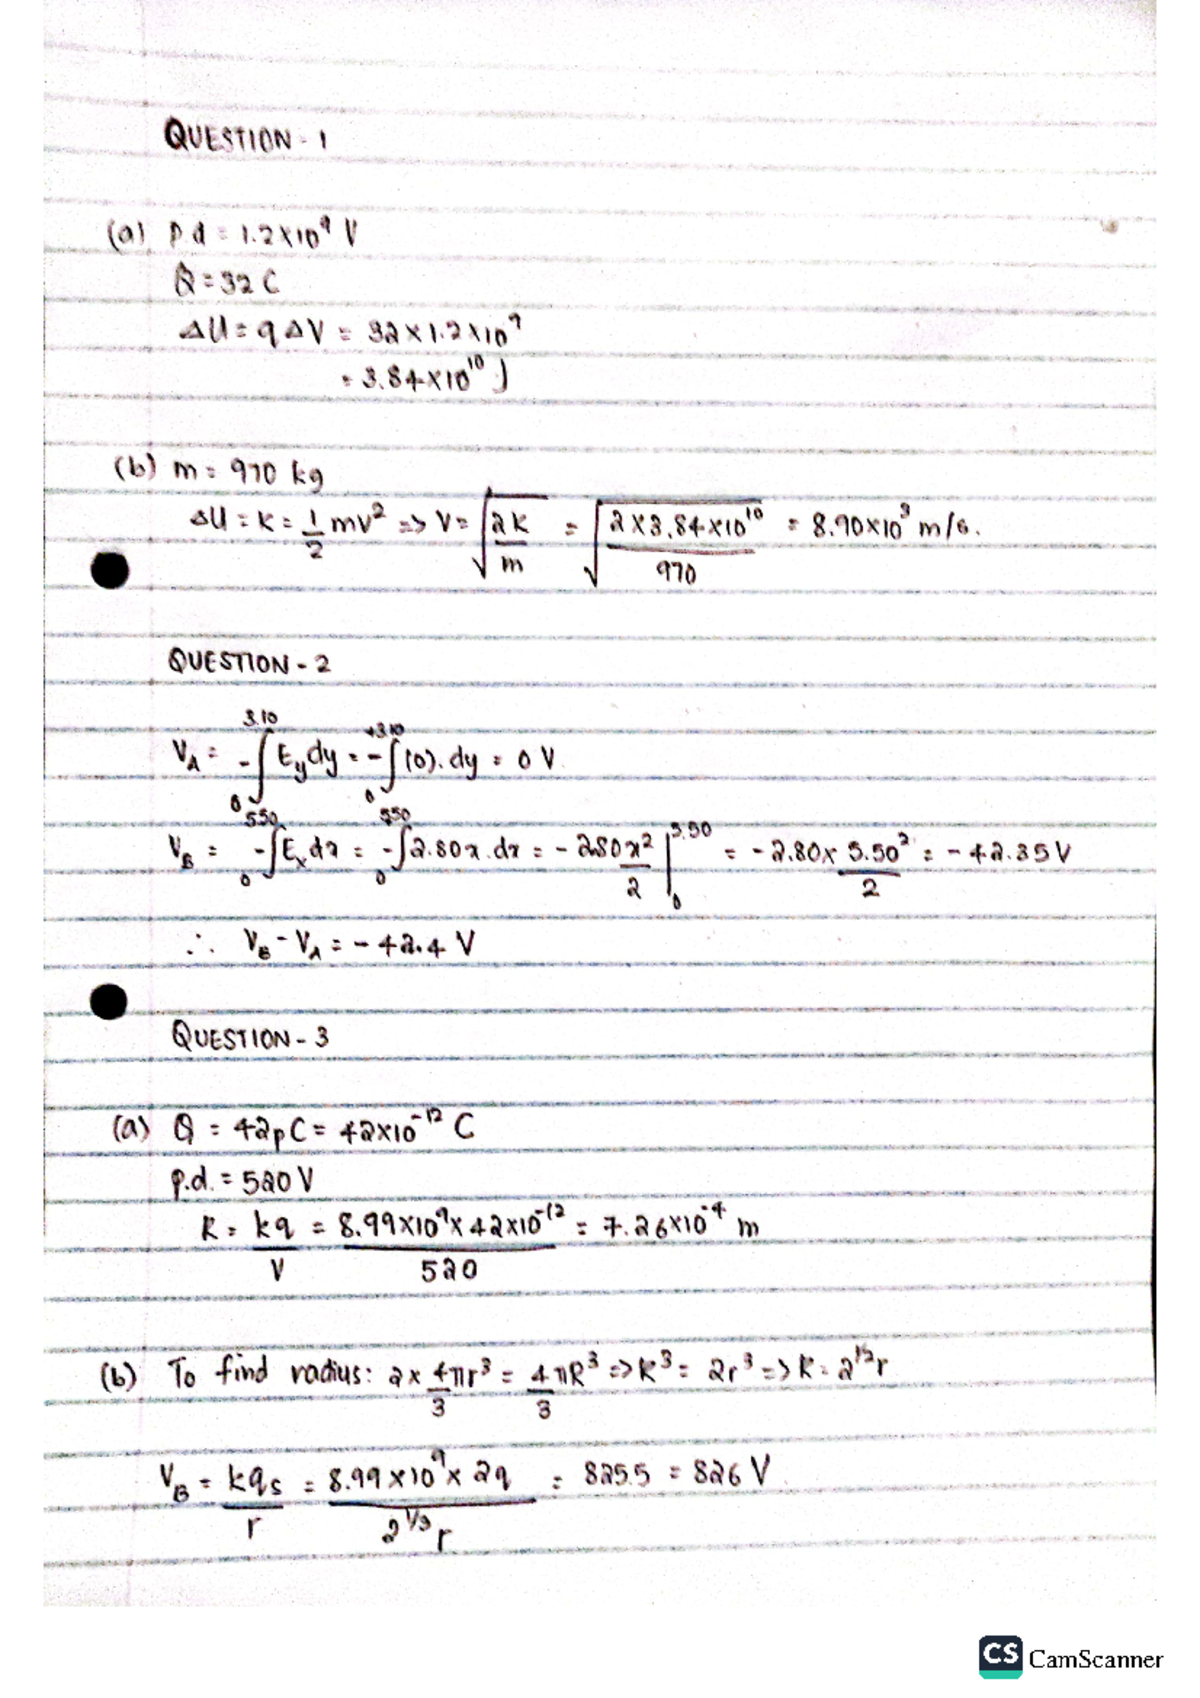 QUESTION - 1
(a) p.d = 1.2×10⁹ V
Q = 32 C
ΔU = qΔV = 32×1.2×10⁹
= 3.84×10¹⁰ J
(b) m = 970 kg
ΔU = K = 1/2 mv² => V = √(2K/m) = √(2×3.84×10¹⁰/970) = 8.90×10³ m/s.
QUESTION - 2
V_A = -∫₀^3.10 E_y dy = -∫₀^+3.10 (0).dy = 0 V.
V_B = -∫₀^5.50 E_x dx = -∫₀^5.50 2.80x.dx = -2.80x²/2 |₀^5.50 = -2.80× 5.50²/2 = -42.35V
∴ V_B - V_A = -42.4 V
QUESTION - 3
(a) Q = 42pC = 42×10⁻¹² C
p.d. = 520 V
R = kq/V = 8.99×10⁹×42×10⁻¹²/520 = 7.26×10⁻⁴ m
(b) To find radius: 2×4/3πr³ = 4/3πR³ => R³ = 2r³ => R = 2^(1/3)r
V_B = kq_s/r = 8.99×10⁹×2q/2^(1/3)r = 825.5 = 826 V.
CS CamScanner